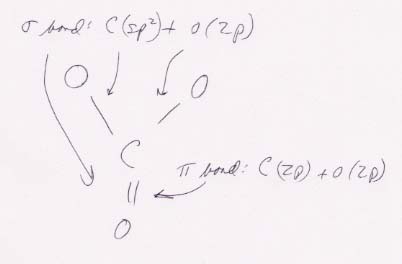 σ bond: C(sp²)+ O(2p)
O
O
C
π bond: C(2p)+O(2p)
O